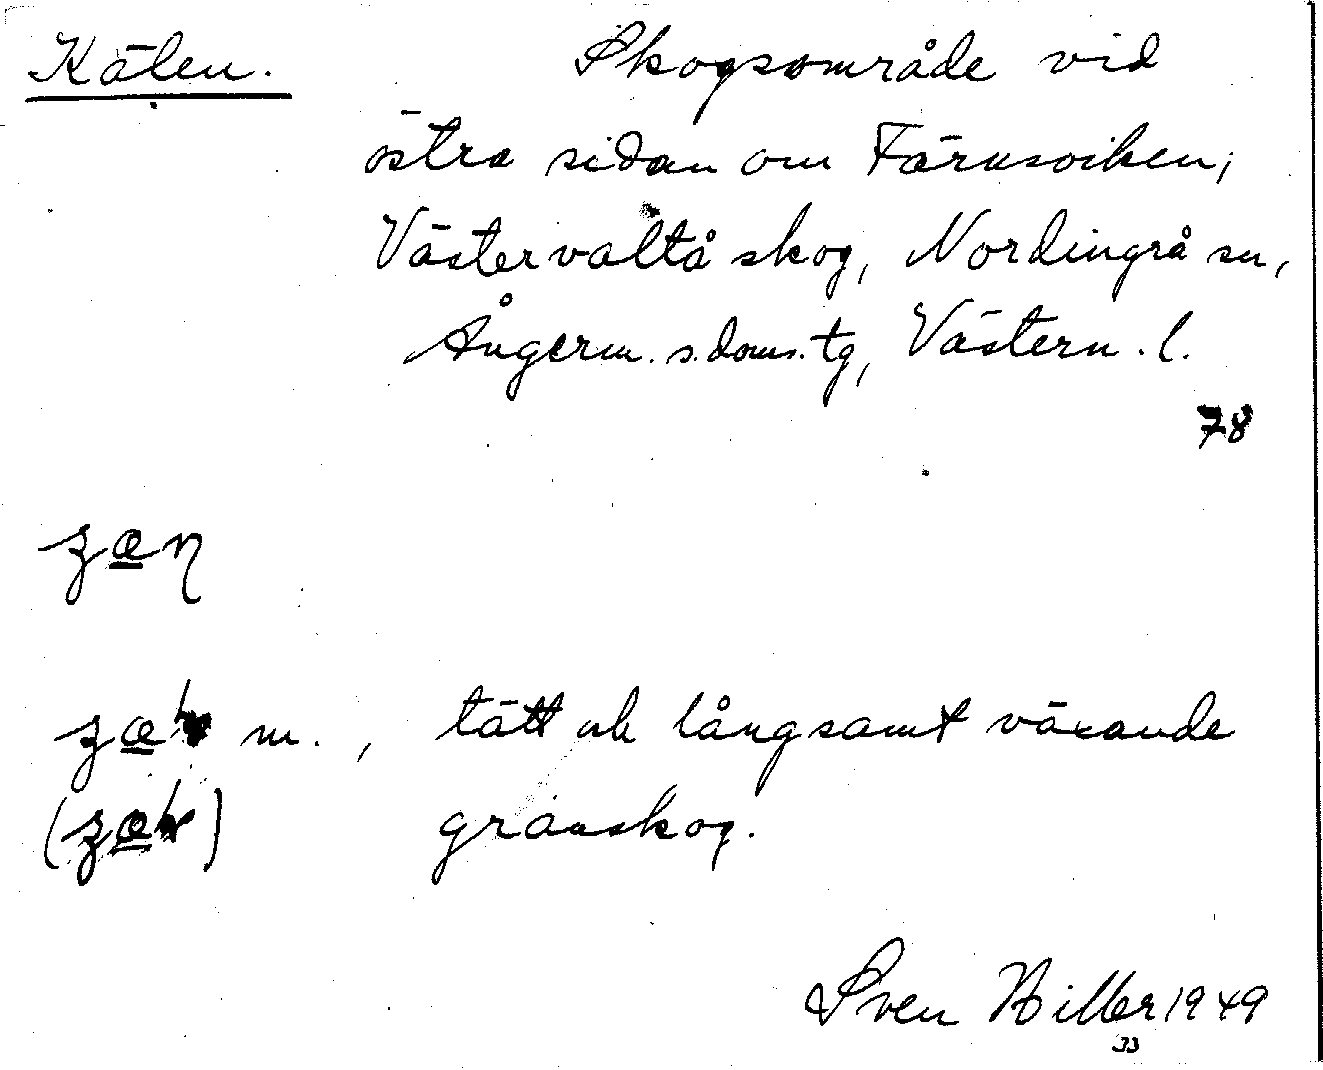 Kälen. Skogsområde vid
östra sidan om Färnsviken,
Västervåltå skog, Nordingrå sn,
Ångerm. s. doms. tg, Västern. l.
78
m., tätt och långsamt växande
granskog.
Sven Hiller 1949
33